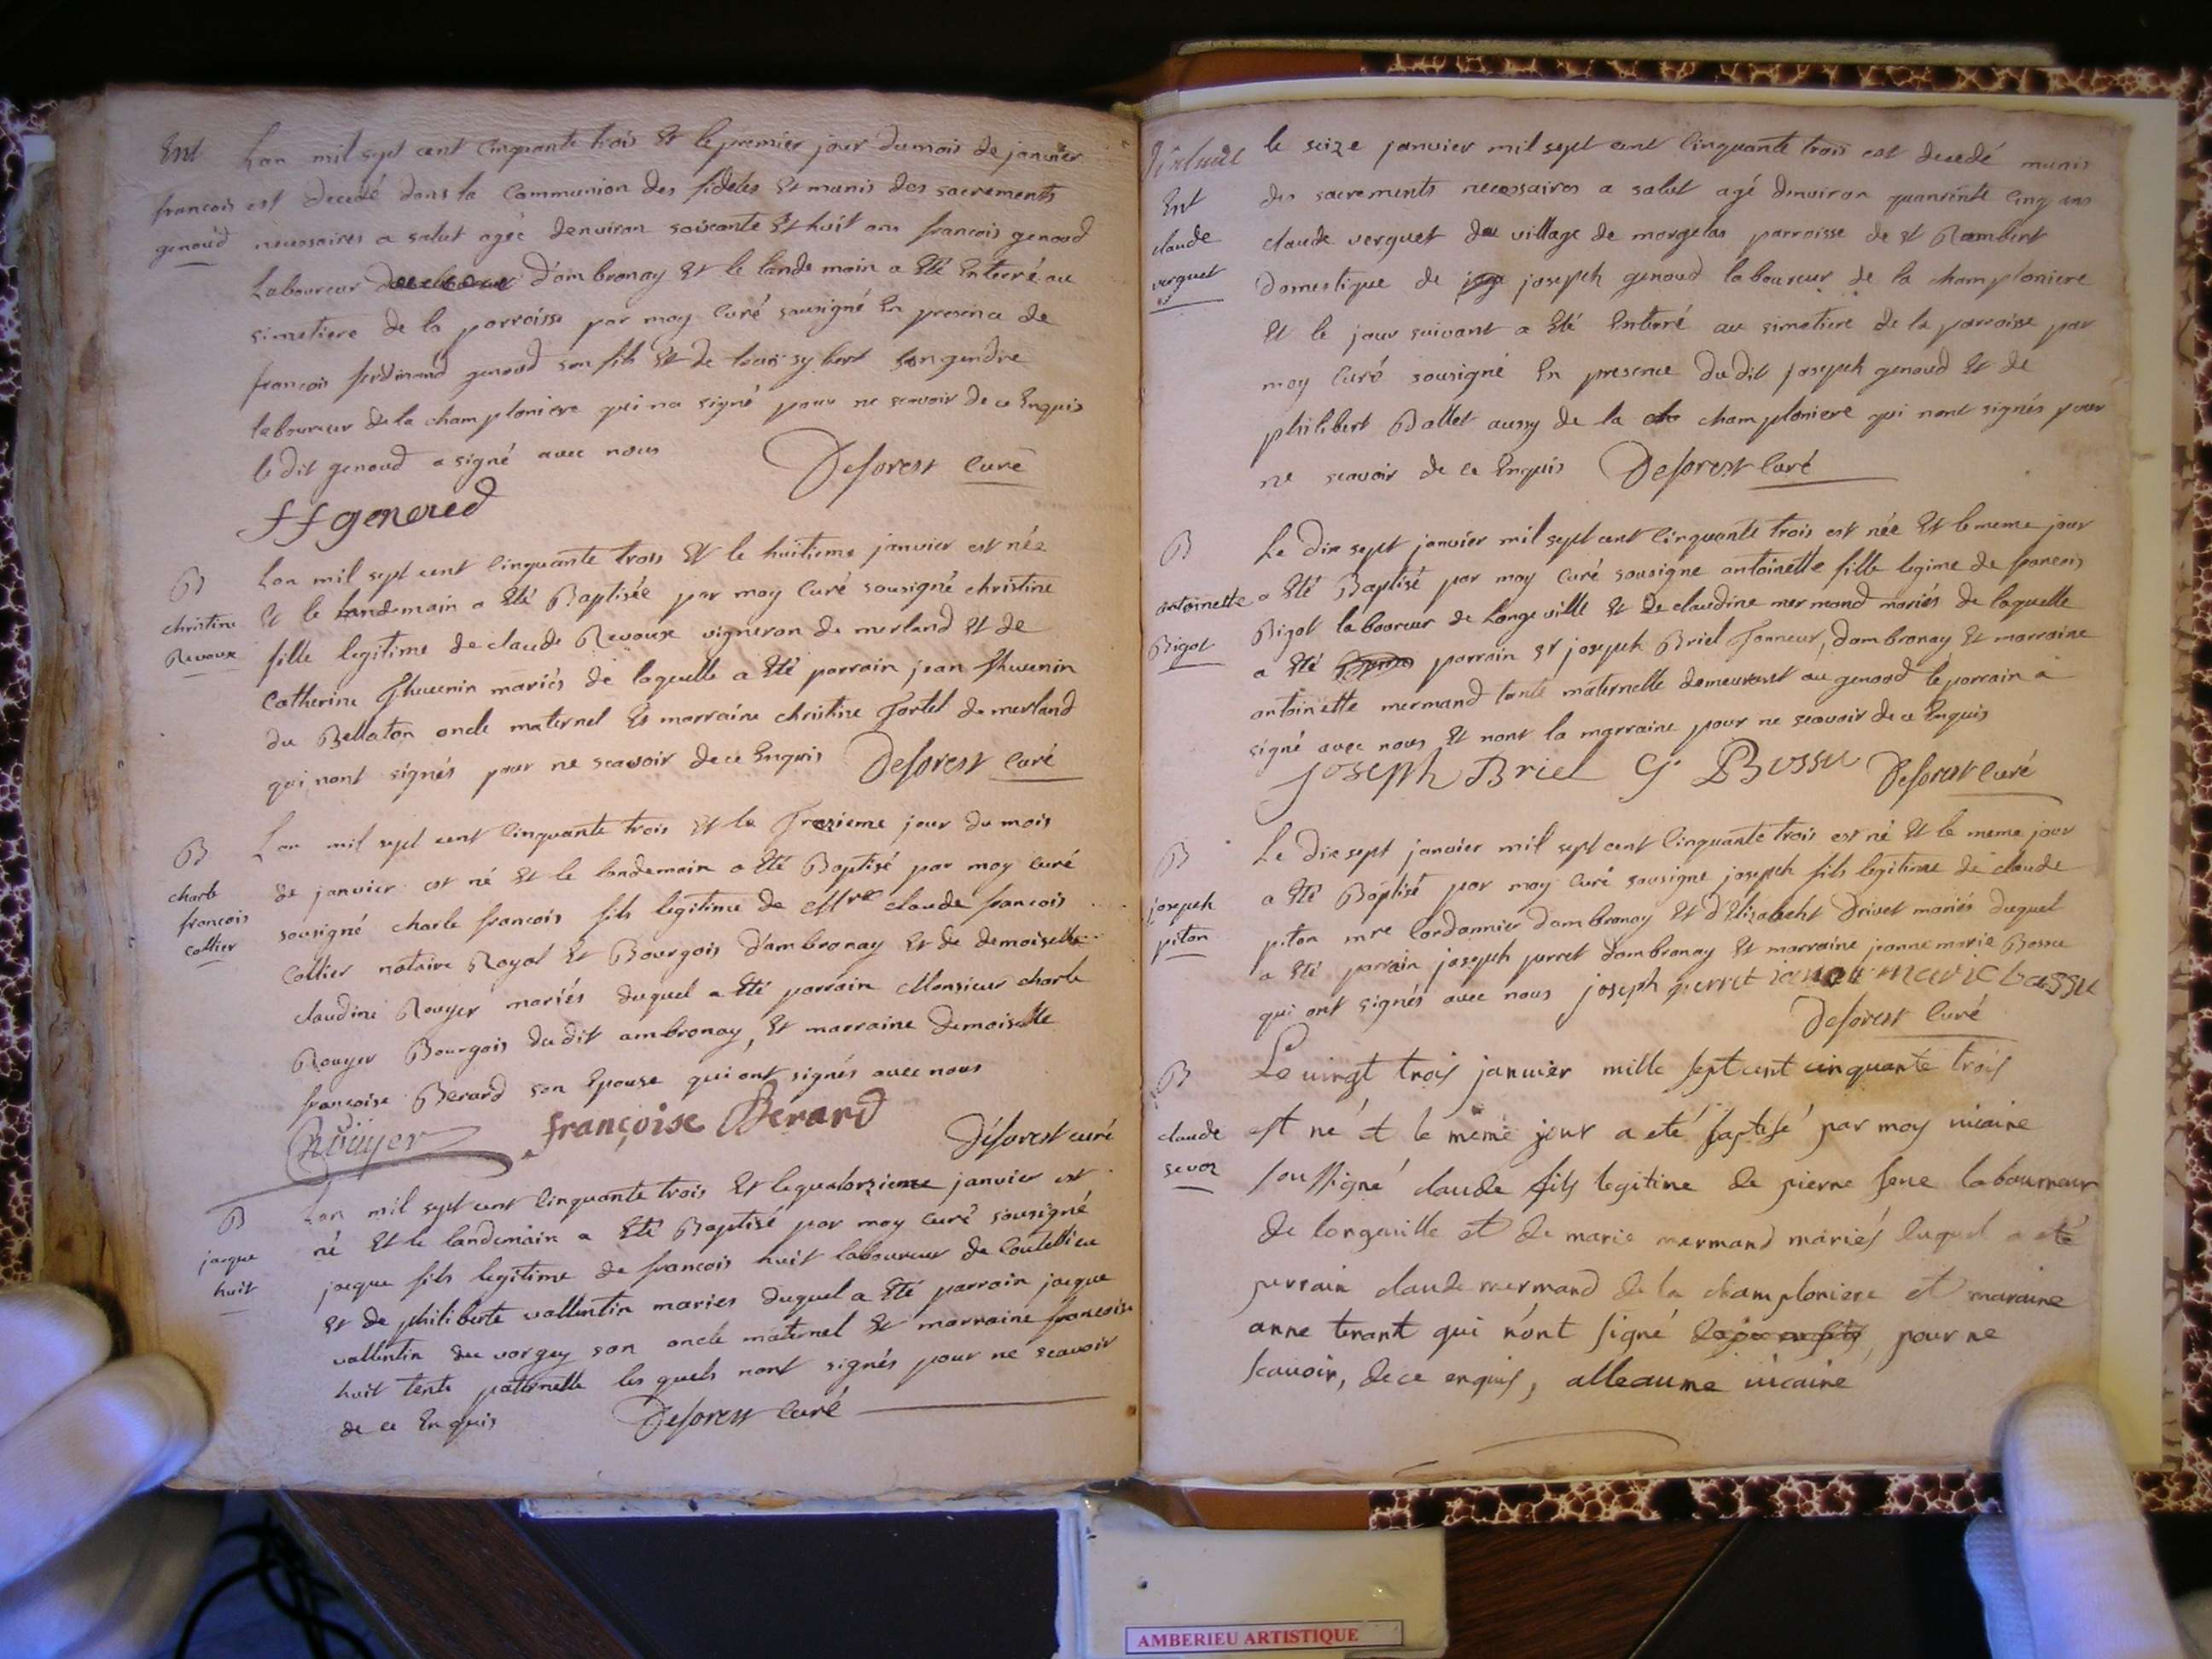 Ent
francois
genoud
Lan mil sept cent Cinquante trois Et le premier jour du mois de janvier
est decedé dans la Communion des fideles Et munis des sacrements
necessaires a salut agée denviron soixante Et huit ans francois genoud
Laboureur d'ambronay Et le landemain a Eté Enterré au
simetiere de la parroisse par moy Curé sousigné En presence de
francois ferdinand genoud son fils Et de sybert son gendre
laboureur de la champloniere qui na signé pour ne scavoir de ce Enquis
le dit genoud a signé avec nous Deforest Curé
ff genoud
B
christine
Revoux
Lan mil sept cent Cinquante trois Et le huitieme janvier est née
Et le landemain a Eté Baptisée par moy Curé sousigné christine
fille legitime de claude Revoux vigneron de merland Et de
Catherine Thuvenin mariés de laquelle a Eté parrain jean Thuvenin
du Bellaton oncle maternel Et marraine christine Tortel de merland
qui nont signés pour ne scavoir de ce Enquis Deforest Curé
B
charle
francois
Cottier
Lan mil sept cent Cinquante trois Et le Trezieme jour du mois
de janvier est né Et le landemain a Eté Baptisé par moy Curé
sousigné charle francois fils legitime de Mre claude francois
Cottier notaire Royal Et Bourgois d'ambronay Et de demoiselle
claudine Rouyer mariés duquel a Eté parrain Monsieur charle
Rouyer Bourgois dudit ambronay, Et marraine Demoiselle
francoise Berard son Epouse qui ont signés avec nous
CRouyer françoise Berard Deforest curé
B
jacque
huit
Lan mil sept cent Cinquante trois Et le quatorzieme janvier est
né Et le landemain a Eté Baptisé par moy Curé sousigné
jacque fils legitime de francois huit laboureur de Coutellieu
Et de philiberte vallentin mariés duquel a Eté parrain jacque
vallentin du vorgey son oncle maternel Et marraine francoise
huit tente paternelle les quels nont signés pour ne scavoir
de ce Enquis Deforest Curé
Ent
claude
verguet
le seize janvier mil sept cent Cinquante trois est decedé munis
des sacrements necessaires a salut agé denviron quarente Cinq ans
claude verguet du village de morgelas parroisse de st Rambert
Domestique de joseph genoud laboureur de la champloniere
Et le jour suivant a Eté Enterré au simetiere de la parroisse par
moy Curé sousigné En presence du dit joseph genoud Et de
philibert Ballet aussy de la champloniere qui nont signés pour
ne scavoir de ce Enquis Deforest Curé
B
antoinette
Bigot
Le Dix sept janvier mil sept cent Cinquante trois est née Et le meme jour
a Eté Baptisé par moy Curé sousigne antoinette fille legime de francois
Bigot laboureur de Longeville Et de claudine mermand mariés de laquelle
a Eté parrain sr joseph Briel Tonneur, dambronay Et marraine
antoinette mermand tante maternelle demeurant au genoud le parrain a
signé avec nous Et nont la marraine pour ne scavoir de ce Enquis
joseph Briel G. Bossu Deforest Curé
B
joseph
piton
Le Dix sept janvier mil sept cent Cinquante trois est né Et le meme jour
a Eté Baptisé par moy Curé sousigne joseph fils legitime de claude
piton mre Cordonnier dambronay Et d'Elizabeht Drivet mariés duquel
a Eté parrain joseph perret dambronay Et marraine jeanne marie Bossu
qui ont signés avec nous joseph perret marie bossu
Deforest Curé
B
claude
seve
Le vingt trois janvier mille sept cent cinquante trois
est né et le meme jour a eté baptisé par moy vicaire
soussigné claude fils legitime de pierre seve laboureur
de longeville et de marie mermand mariés duquel a eté
perrain claude mermand de la champloniere et maraine
anne tenant qui n'ont signé pour ne
scavoir, de ce enquis, alleaume vicaire
AMBERIEU ARTISTIQUE